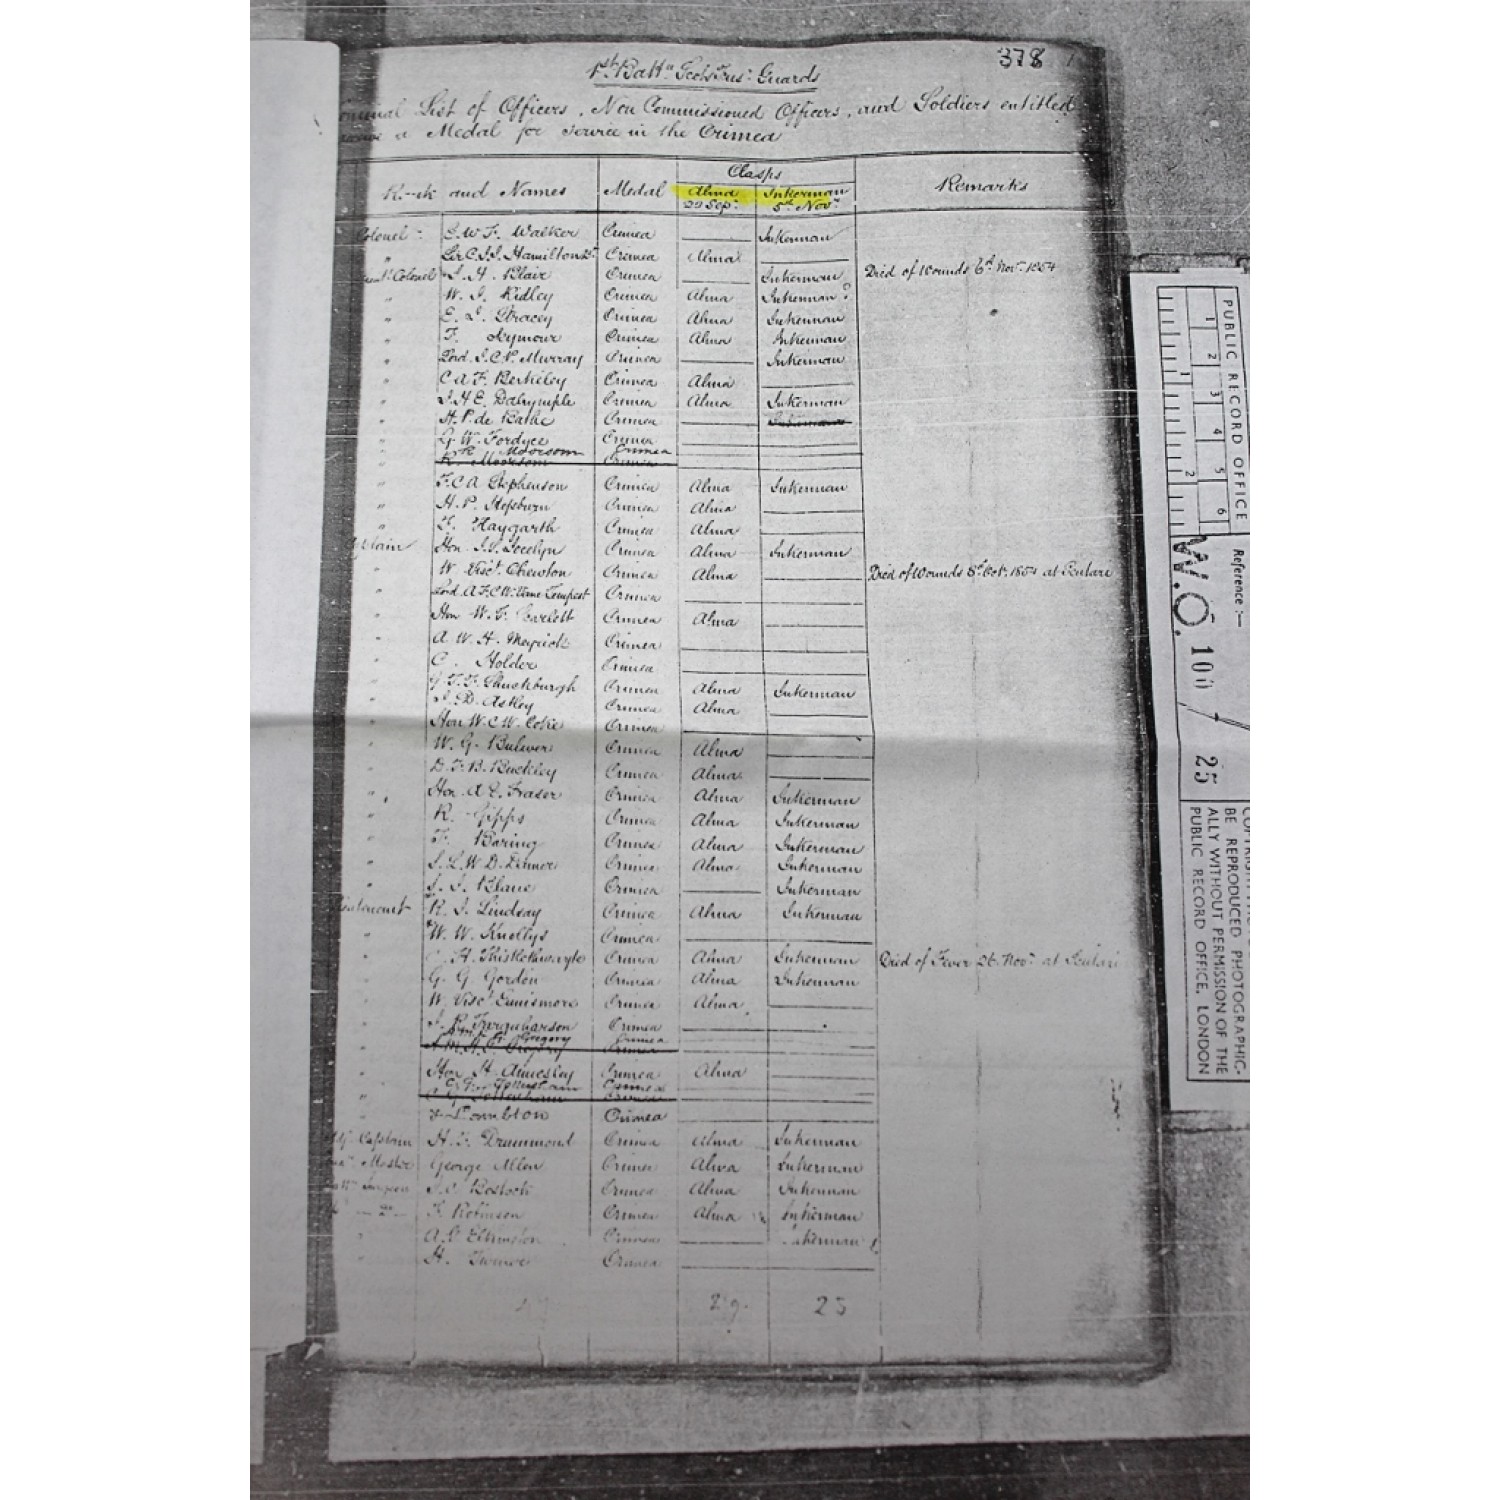 378
1st Battn Scots Fus: Guards
List of Officers, Non Commissioned Officers, and Soldiers entitled
a Medal for Service in the Crimea
Clasps
and Names Medal Alma Inkerman Remarks
20 Sepr 5th Novr
Colonel E. W. F. Walker Crimea Inkerman
" Sir C. J. J. Hamilton Bt Crimea Alma
Colonel J. H. Blair Crimea Inkerman Died of Wounds 6th Novr 1854
" W. J. Ridley Crimea Alma Inkerman?
" E. J. Stracey Crimea Alma Inkerman
" F. Seymour Crimea Alma Inkerman
" Lord J. C. P. Murray Crimea Inkerman
" C A F. Berkeley Crimea Alma
" J. H. E. Dalrymple Crimea Alma Inkerman
" H. P. de Bathe Crimea Inkerman
" G. W. Fordyce Crimea
R Moorsom Crimea
R. Moorsom Crimea
" F. C A Stephenson Crimea Alma Inkerman
" H. P. Hepburn Crimea Alma
" F. Haygarth Crimea Alma
Captain Hon. J. S. Jocelyn Crimea Alma Inkerman
" W Visct. Chewton Crimea Alma Died of Wounds 8th Oct. 1854 at Scutari
" Lord A. F. C. W. Vane Tempest Crimea
" Hon W. F. Scarlett Crimea Alma
" A W. H. Meyrick Crimea
" C. Holder Crimea
" G. T. F. Shuckburgh Crimea Alma Inkerman
" J. D. Astley Crimea Alma
" Hon W. C. W. Coke Crimea
" W. G. Bulwer Crimea Alma
" D. F. B. Buckley Crimea Alma
" Hon. A. E. Fraser Crimea Alma Inkerman
" R. Gipps Crimea Alma Inkerman
" F. Baring Crimea Alma Inkerman
" S. L. W. D. Damer Crimea Alma Inkerman
" J. Blane Crimea Inkerman
Lieutenant R. J. Lindsay Crimea Alma Inkerman
" W. W. Knollys Crimea
" A. Thistlethwayte Crimea Alma Inkerman Died of Fever 26 Novr at Scutari
" G. G Gordon Crimea Alma Inkerman
" W. Visct Ennismore Crimea Alma
" J. R. Farquharson Crimea
Gregory Crimea
Gregory Crimea
" Hon H. Annesley Crimea Alma
Tottenham Crimea
Tottenham Crimea
" Crimea
Captain H. F. Drummond Crimea Alma Inkerman
Master George Allen Crimea Alma Inkerman
Surgeon J. A. Bostock Crimea Alma Inkerman
F. Robinson Crimea Alma Inkerman
" A. G. Elkington Crimea Inkerman
" H. Turner Crimea
29. 25
PUBLIC RECORD OFFICE
1 2 3 4 5 6
1 2
Reference:-
W.O. 100
25
BE REPRODUCED PHOTOGRAPHIC-
ALLY WITHOUT PERMISSION OF THE
PUBLIC RECORD OFFICE, LONDON